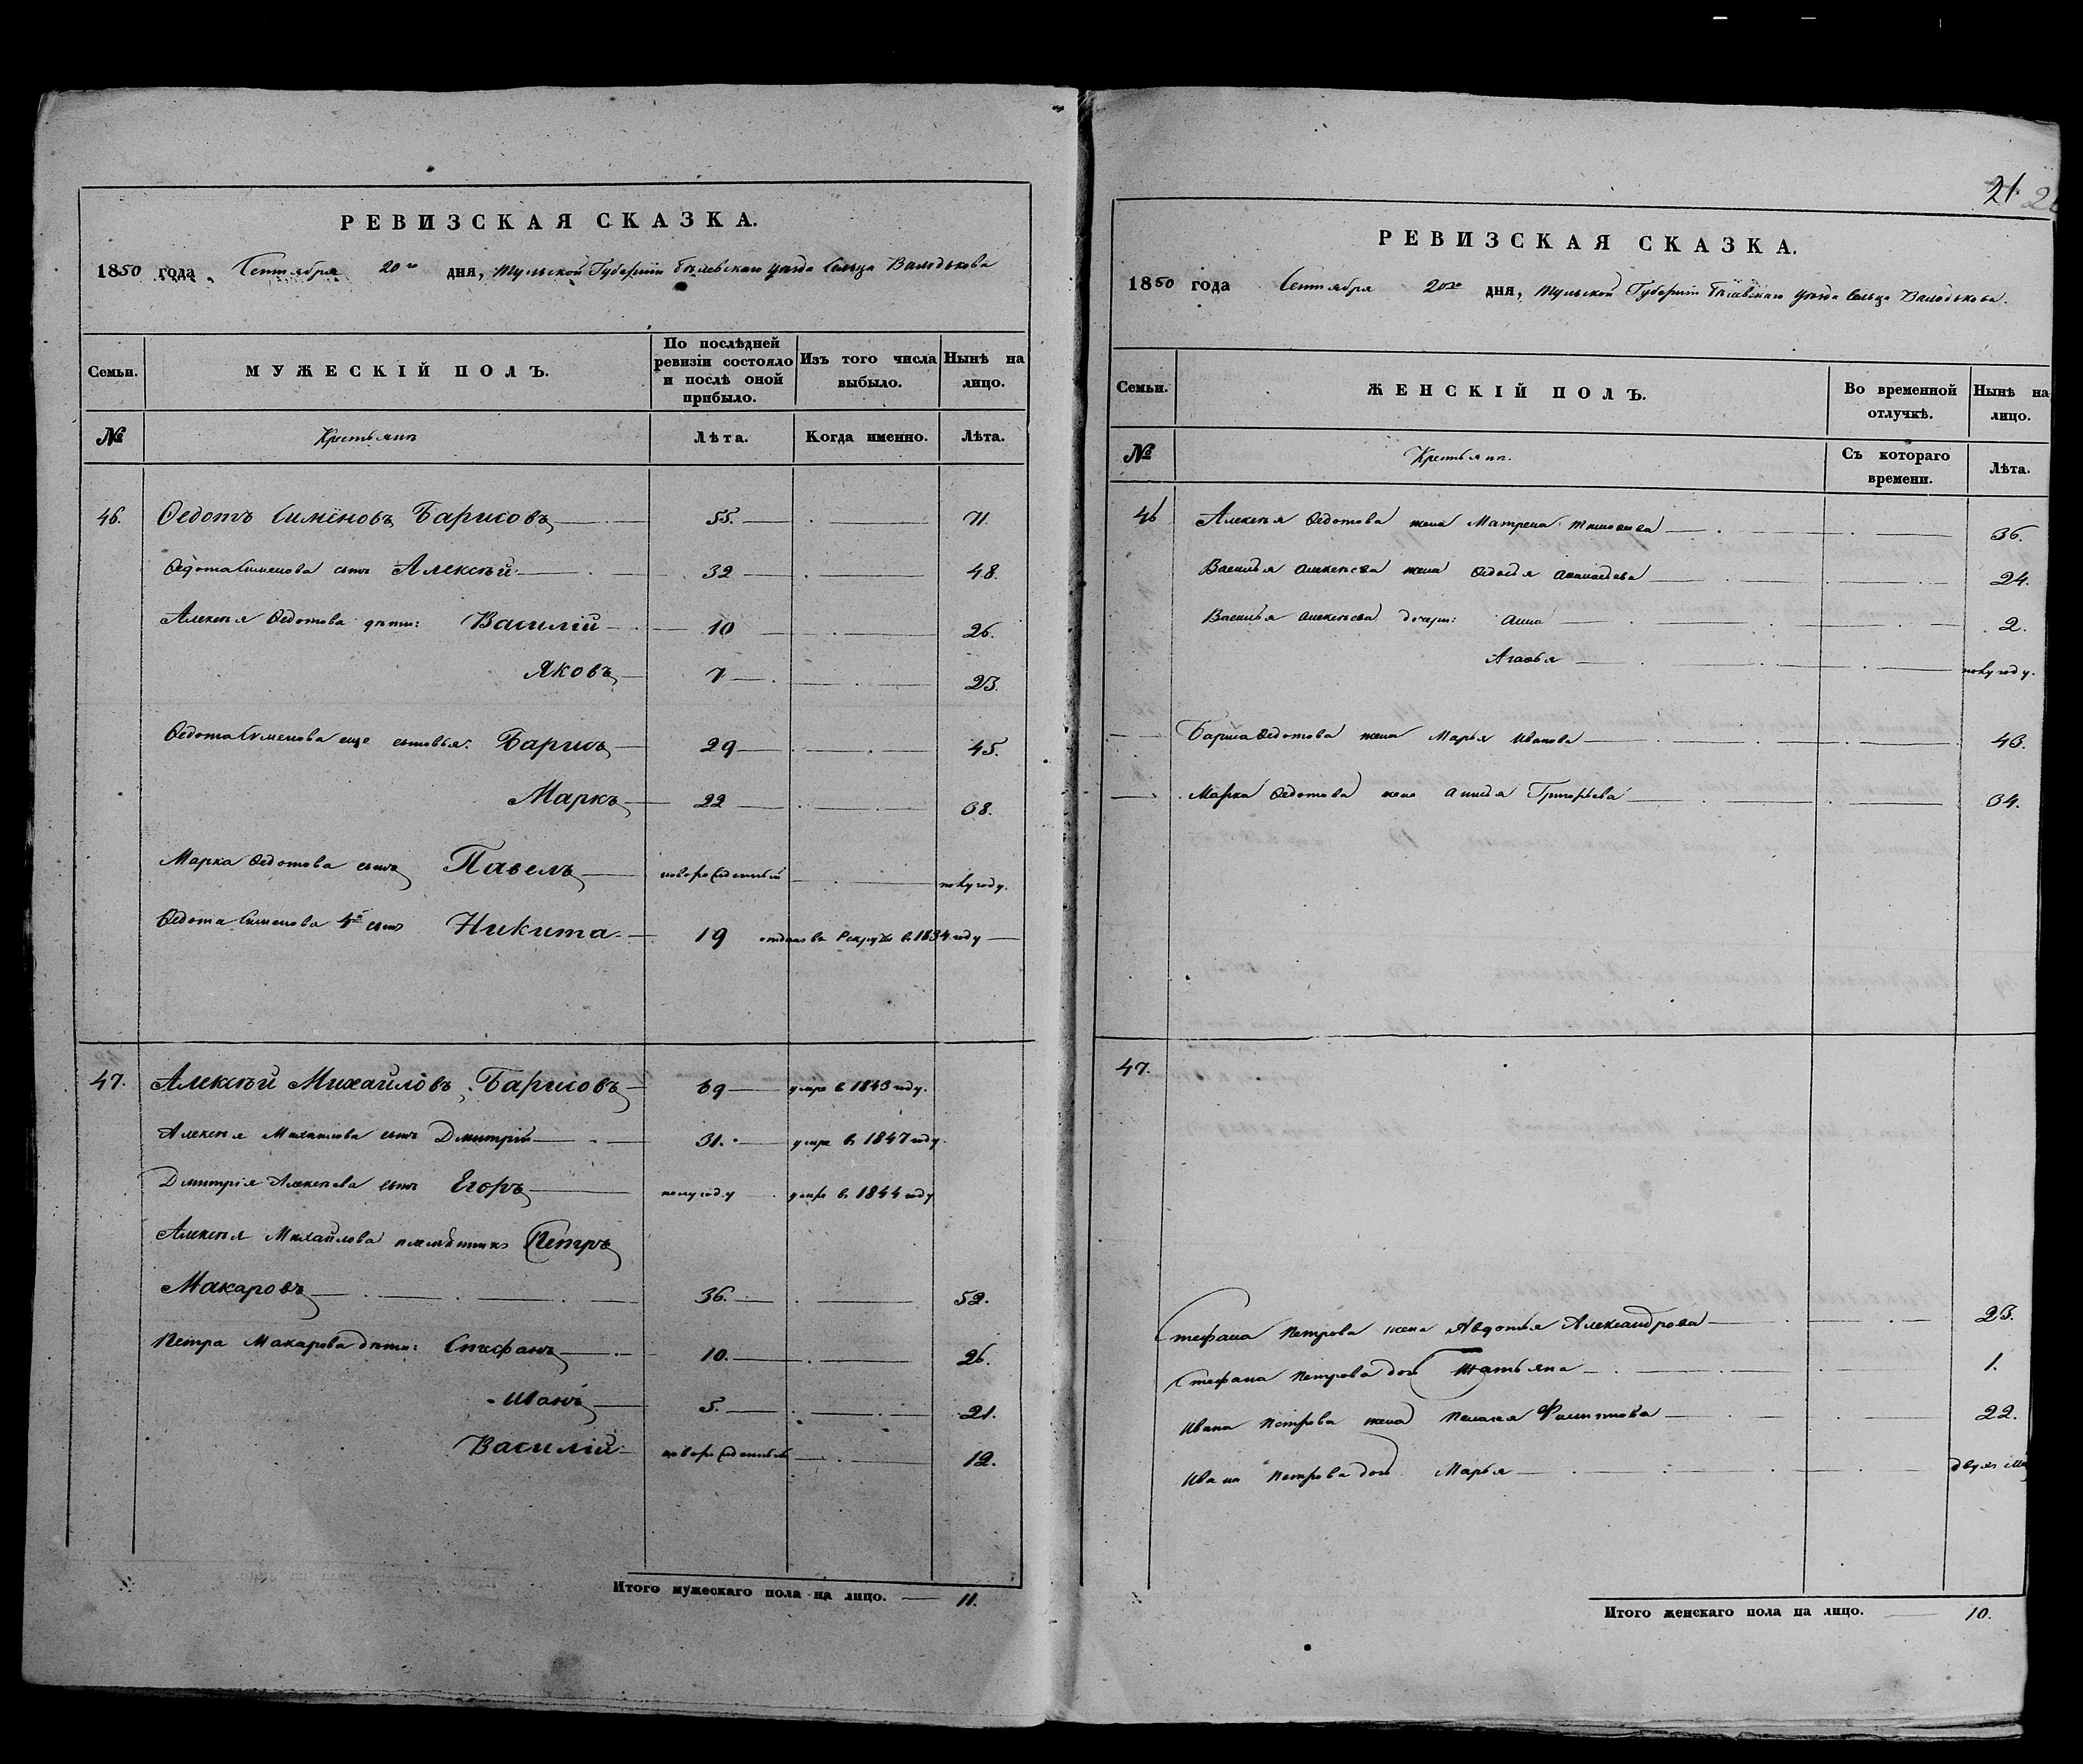 РЕВИЗСКАЯ СКАЗКА.
1850 года Сентября 20го дня, Тульской Губерніи Бѣлевскаго уѣзда Сельца Валодькова
Семьи. МУЖЕСКІЙ ПОЛЪ. По послѣдней ревизіи состояло и послѣ оной прибыло. Изъ того числа выбыло. Нынѣ на лицо.
№ Крестьянъ Лѣта. Когда именно. Лѣта.
46. Ѳедотъ Сименовъ Барисовъ 55. 71.
Ѳедота Сименова сынъ Алексѣй 32 48.
Алексѣя Ѳедотова дѣти: Василій 10 26.
Яковъ 7 23.
Ѳедота Сименова еще сыновья: Барисъ 29 45.
Маркъ 22 38.
Марка Ѳедотова сынъ Павелъ новорожденный полугоду.
Ѳедота Сименова 4й сынъ Никита 19 отданъ в Рекруты в 1834 году
47. Алексѣй Михайловъ Барисовъ 69 умре в 1843 году.
Алексѣя Михайлова сынъ Дмитрій 31. умре в 1847 году.
Дмитрія Алексѣева сынъ Егоръ полугоду умре в 1844 году
Алексѣя Михайлова племѣнникъ Петръ
Макаровъ 36. 52.
Петра Макарова дѣти: Стефанъ 10. 26.
Иванъ 5. 21.
Василій новорожденный 12.
Итого мужескаго пола на лицо. 11.
21.
РЕВИЗСКАЯ СКАЗКА.
1850 года Сентября 20го дня, Тульской Губерніи Бѣлевскаго уѣзда Сельца Валодькова.
Семьи. ЖЕНСКІЙ ПОЛЪ. Во временной отлучкѣ. Нынѣ на лицо.
№ Крестьянъ. Съ котораго времени. Лѣта.
46 Алексѣя Ѳедотова жена Матрена 36.
Василья Алексѣева жена Ѳедосья 24.
Василья Алексѣева дочери: Анна 2.
Агафья полугоду.
Бариса Ѳедотова жена Марья Иванова 43.
Марка Ѳедотова жена Анисья Григорьева 34.
47.
Стефана Петрова жена Авдотья Александрова 23.
Стефана Петрова дочь Татьяна 1.
Ивана Петрова жена Пелагея Филиппова 22.
Ивана Петрова дочь Марья двухъ
Итого женскаго пола на лицо. 10.